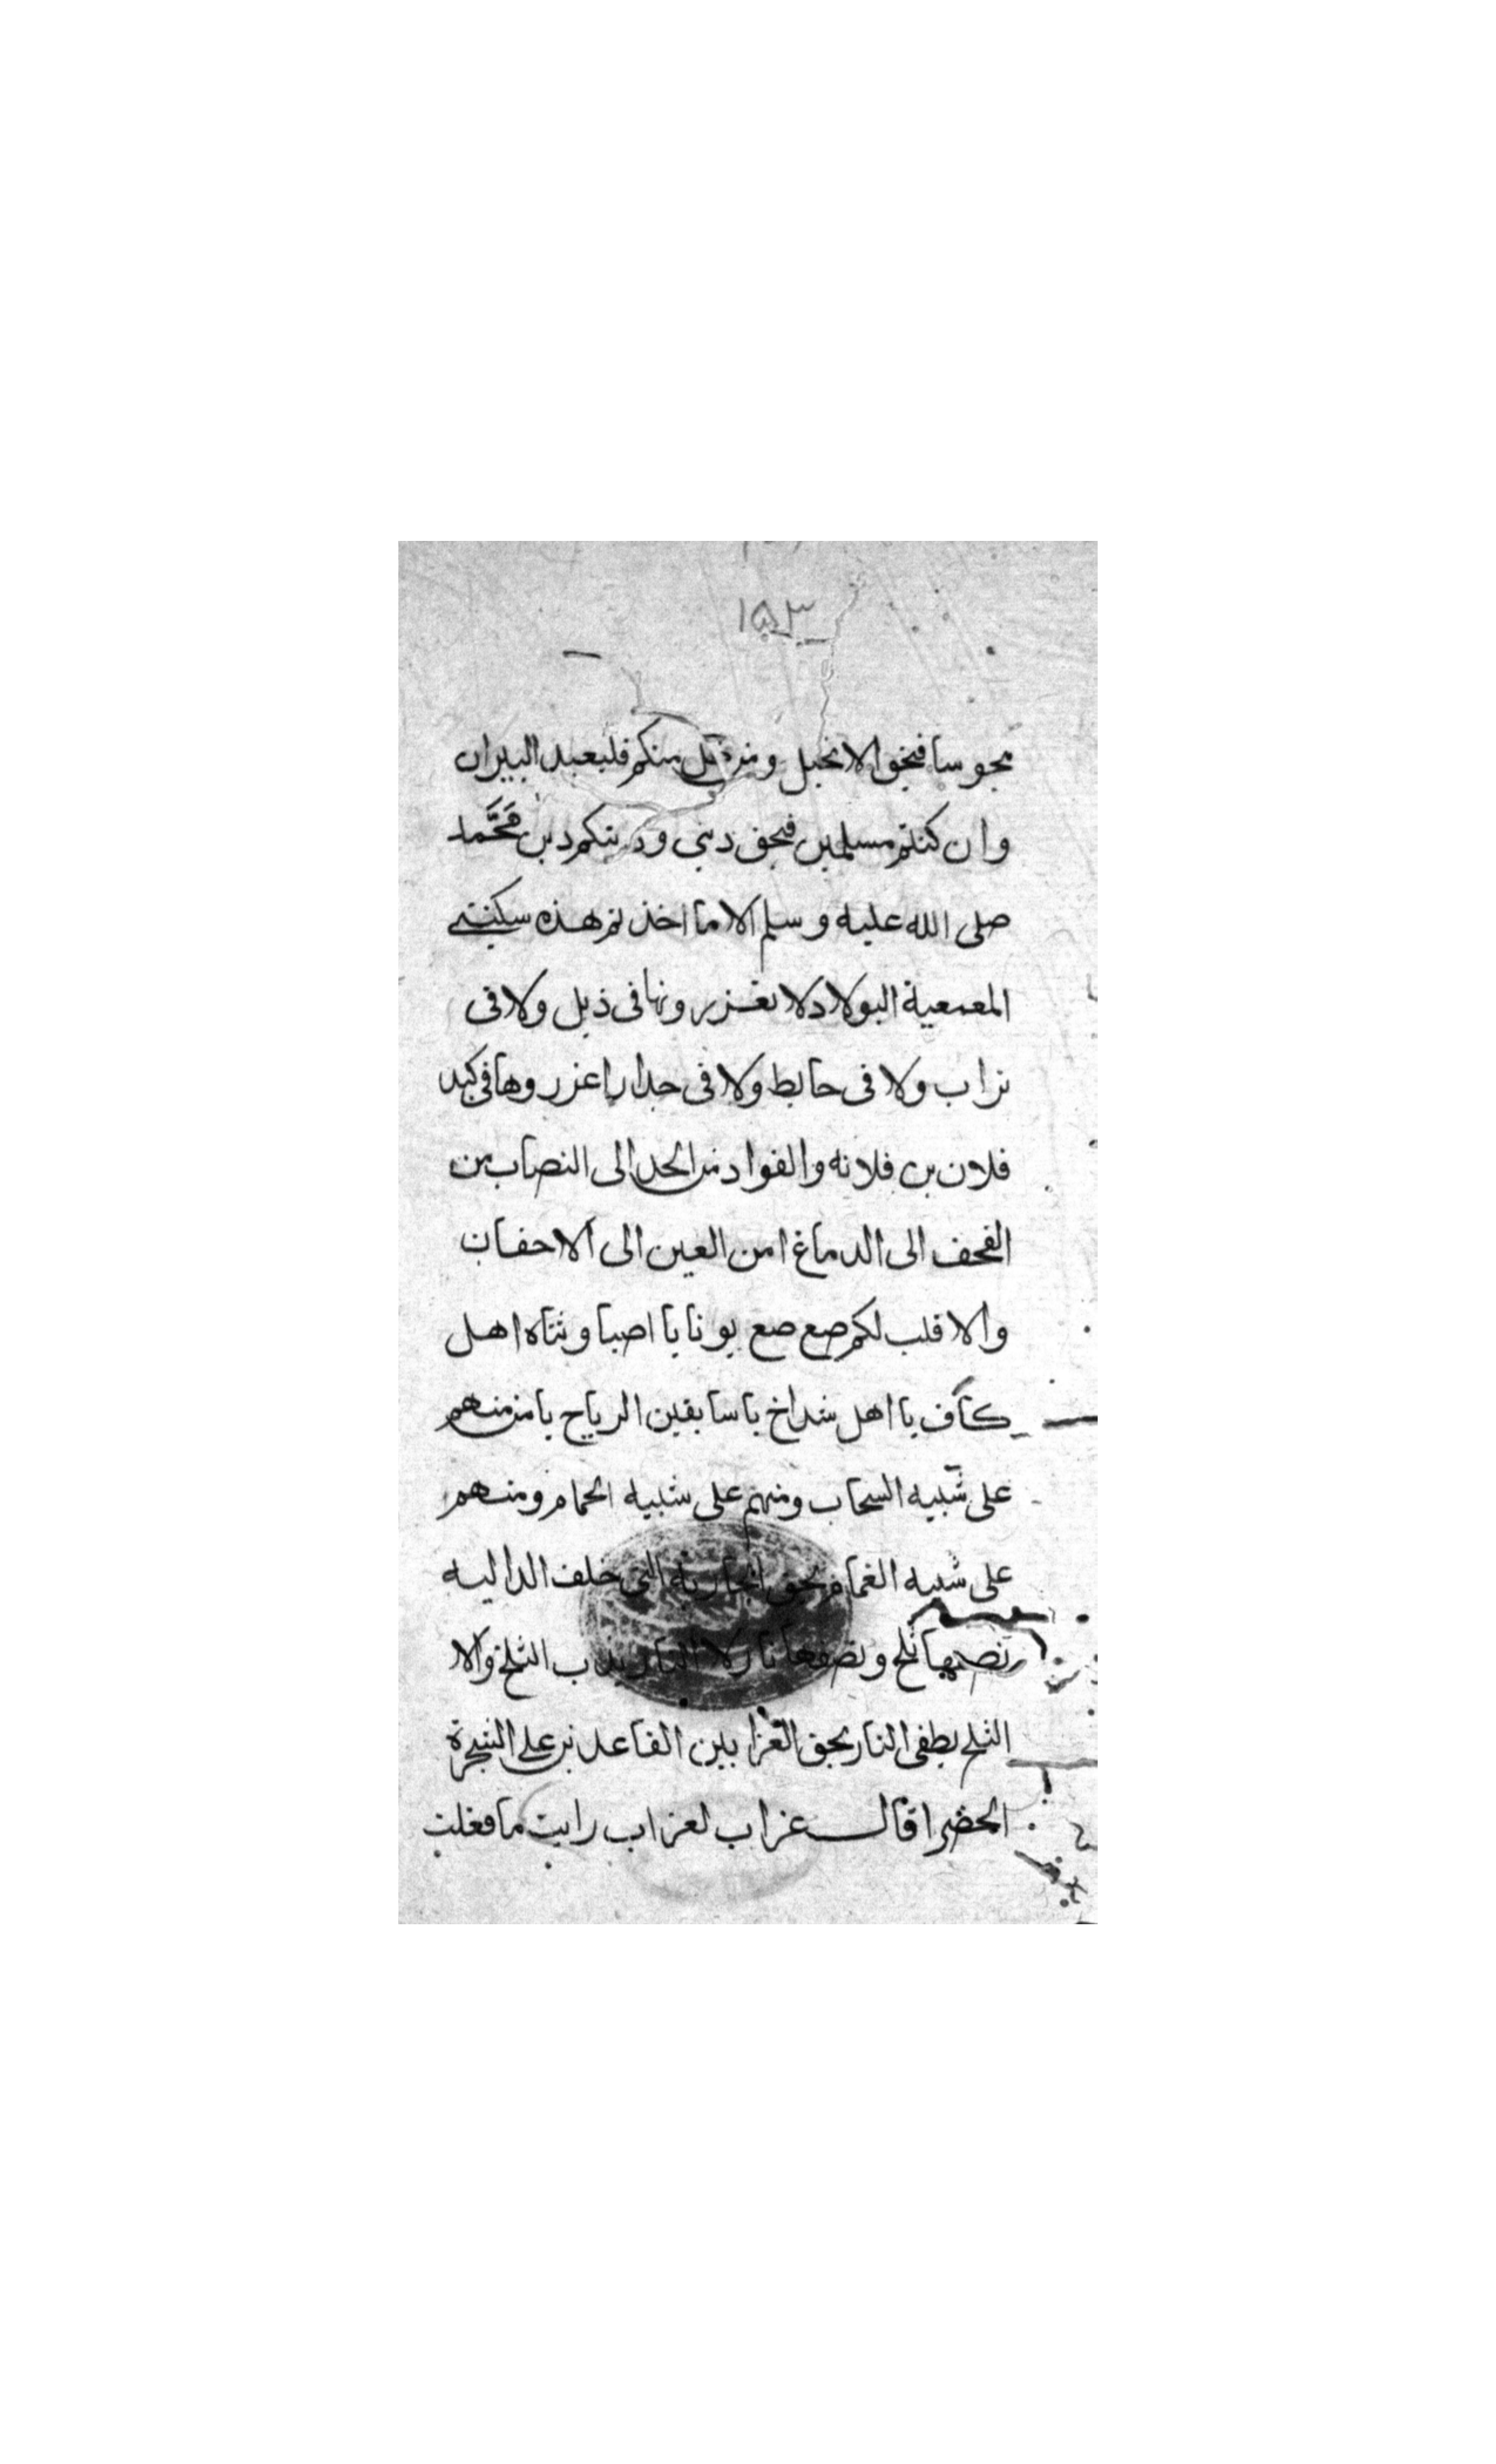 ١٥٣
مجوسا فبحق الانجيل ومن منكم فليعبد النيران
وان كنتم مسلمين فبحق ديني ودينكم دين محمد
صلى الله عليه وسلم الا ما اخذتم هذه سكينتي
المعمعية البولاد لا تغزرونها في ذيل ولا في
تراب ولا في حايط ولا في جدار اغزروها في كبد
فلان بن فلانه والفواد من الحد الى النصاب من
القحف الى الدماغ امن العين الى الاجفان
والا قلب لكم صع صع يونا يا اصباوثتاه اهل
كاف يا اهل شداخ يا سابقين الرياح يا من منهم
على شبيه السحاب ومنهم على شبيه الحمام ومنهم
على شبيه الغمام بحق الجارية التي خلف الدالية
نصيها ثلج ونصفها نار لا النار يذيب الثلج والا
الثلج يطفى النار بحق الغرابين القاعدين على الشجرة
الخضرا قال غراب لغراب رايت ما فعلت